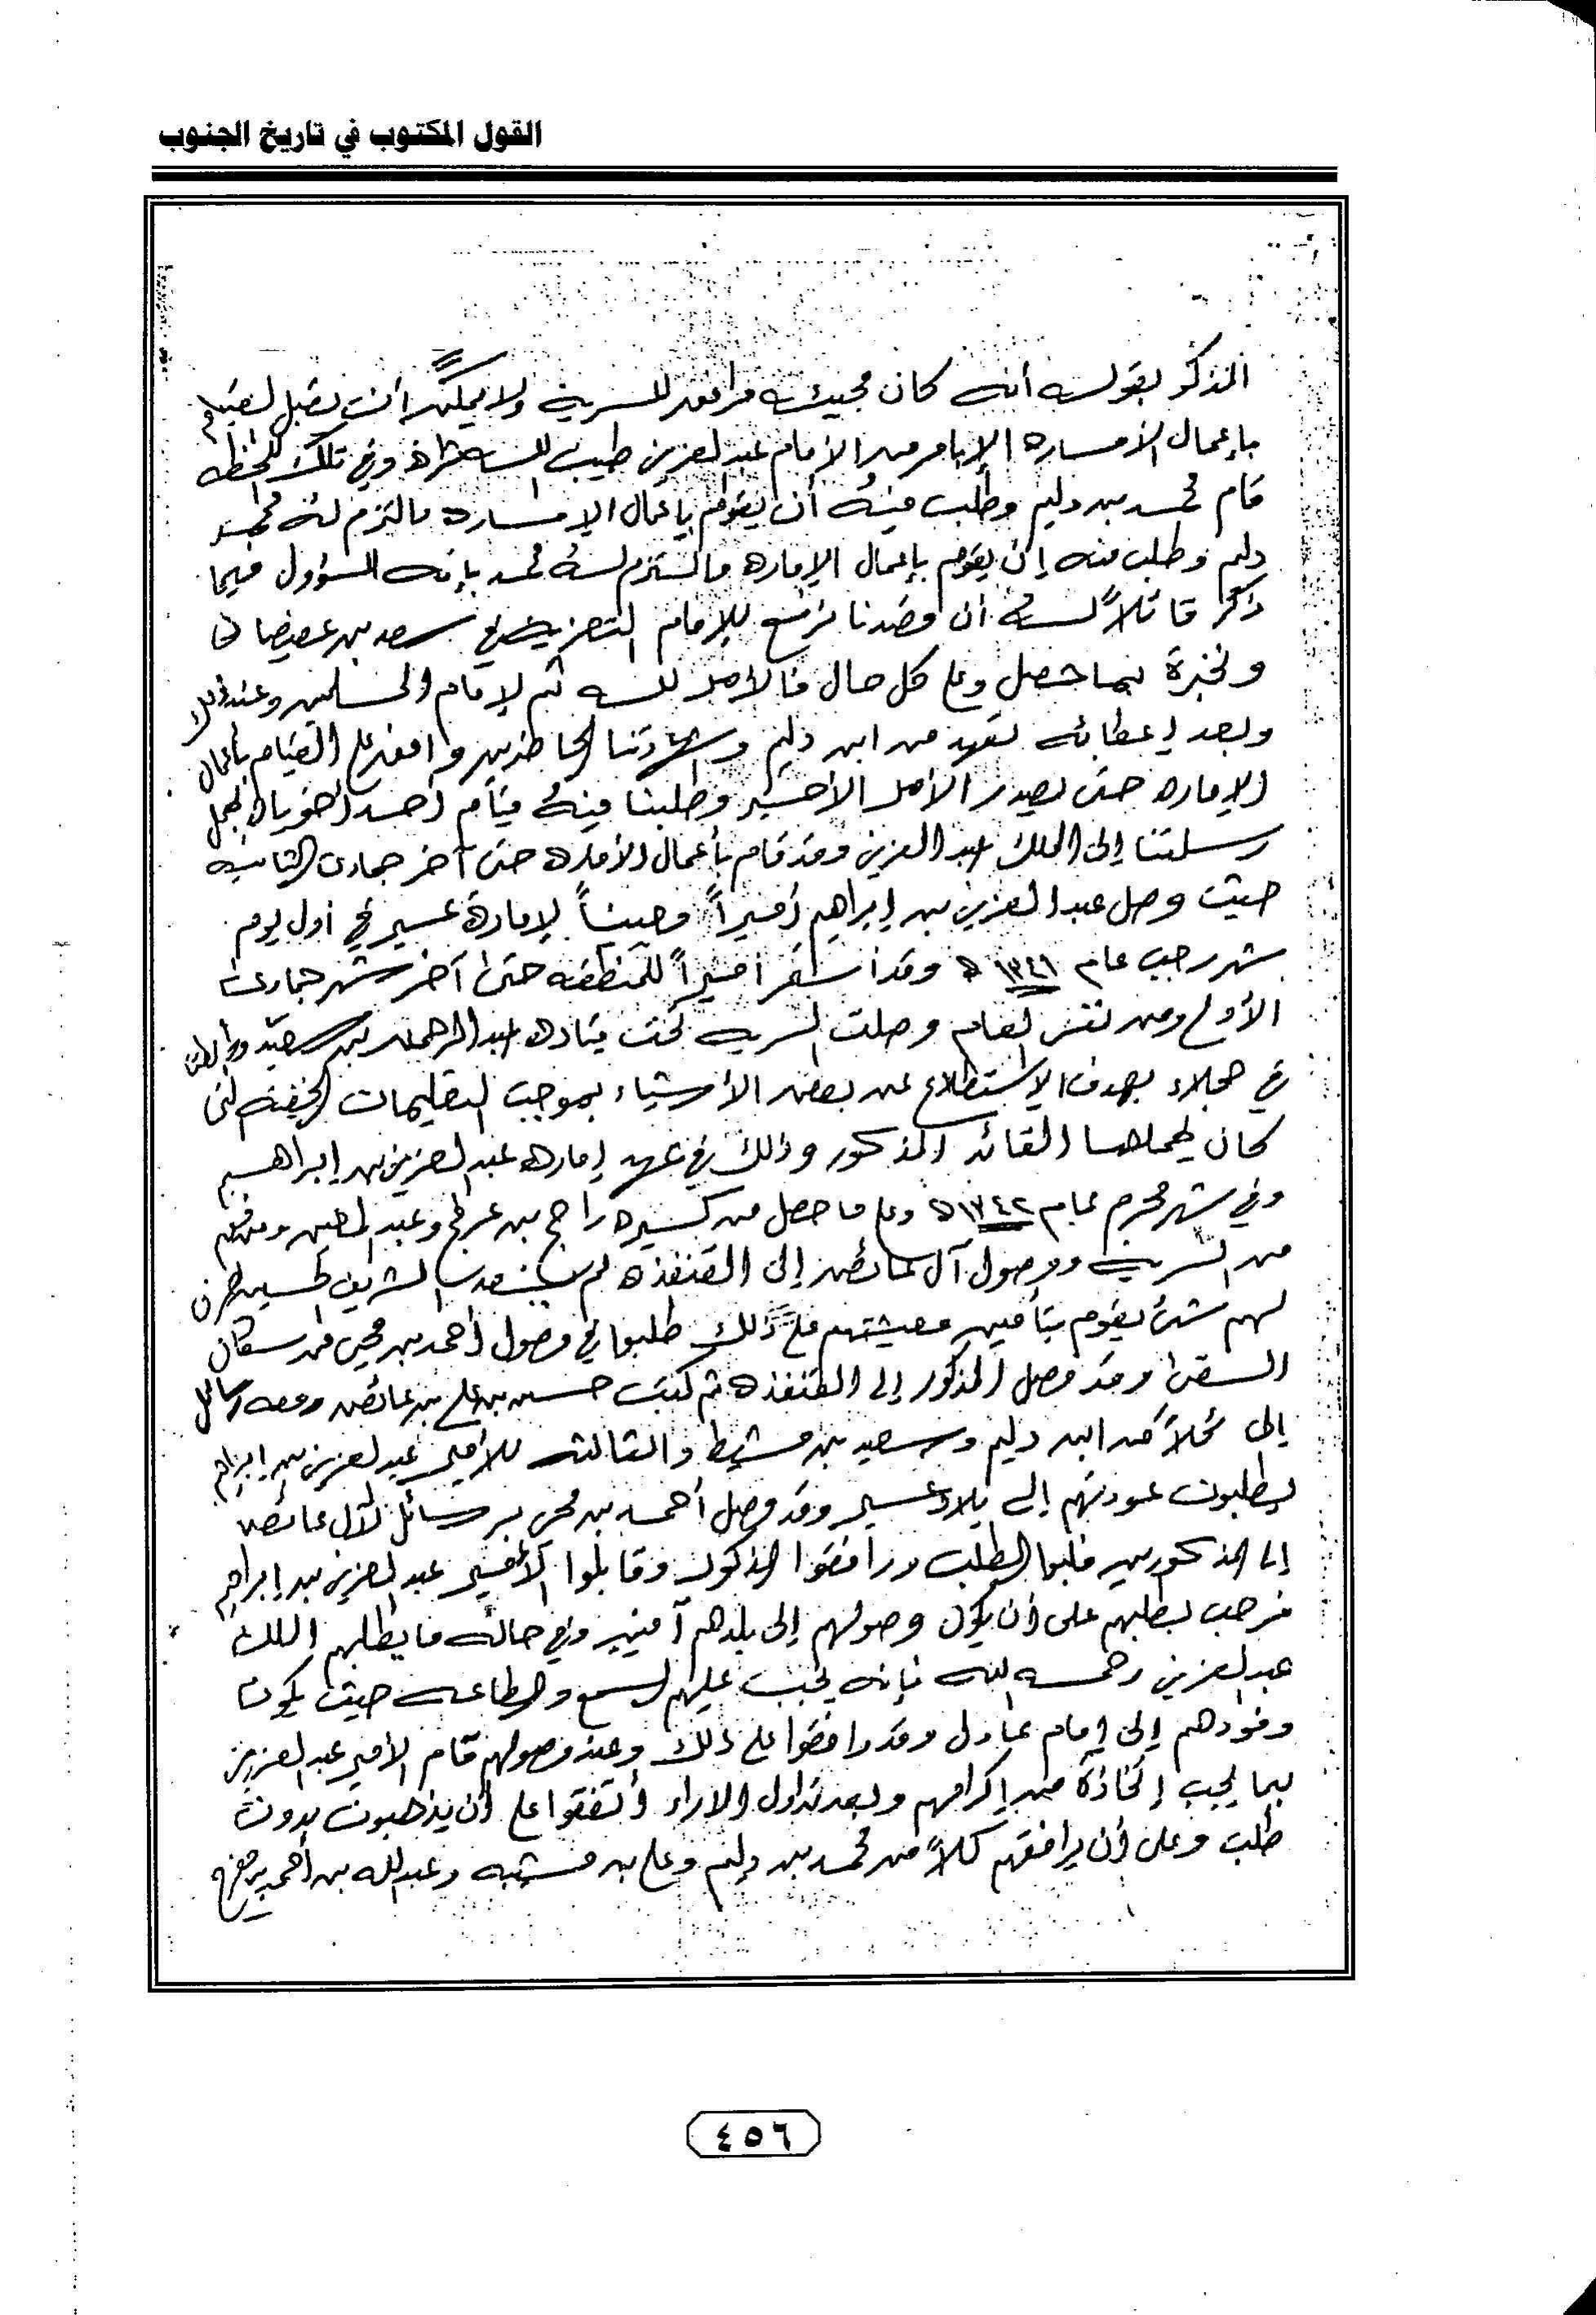 القول المكتوب في تاريخ الجنوب
المذكو بقوله أنه كان مجيئه مرافق للسرية ولا يمكن أنت يقبل لقيام
بإعمال الأمساره الإبأمر من الإمام عبدالعزيز طيب الله ثراه وفي تلك اللحظه
قام محمد بن دليم وطلب منه أن يقوم بأعمال الإمساره مالتزم له محمد
دليم وطلب منه إن يقوم بإعمال الإماره مالتزم له محمد بإنه المسؤول فيما
ذكر قائلاً له أن قصدنا نرفع للإمام التعزية في سعد بن عفيصان
ونخبرة بما حصل وعلى كل حال فالأمر لله ثم لإمام المسلمين وعند ذلك
وبعد إعطائه تعهد من ابن دليم وشهادتنا الحاظرين وافق على القيام بأعمال
الإماره حتى يصدر الأمر الأخير وطلبنا منه قيام أحد أخوياه لحمل
رسلتنا إلى الملك عبد العزيز وقد قام بأعمال الأماره حتى آخر جمادى الثانيه
حيث وصل عبد العزيز بن إبراهيم أميراً معيناً لإمارة عسير في أول يوم
شهر رجب عام ١٣٤١ه وقد أستقر أميراً للمنطقه حتى آخر شهر جمادى
الأولى ومن نفس العام وصلت السريه تحت قياده عبد الرحمن بن سعيد
في حجلاء بهدف الإستطلاع عن بعض الأشياء بموجب التعليمات الخفيه التي
كان يحملها القائد المذكور وذلك في عهد إماره عبد العزيز بن إبراهيم
وفي شهر محرم عام ١٣٤٢ه وعلى ما حصل من كسيره راجح بن عرفج وعبد المعين ومن معهم
من السريه ووصول آل عائض إلى القنفذه لم الشريف الحسين
لهم شئ يقوم بتأمين معيشتهم على ذلك طلبوا في وصول أحمد بن محي من سكان
السقى وقد وصل المذكور إلى القنفذه ثم كتب حسن بن علي بن عائض ومعه رسائل
إلى كلاً من ابن دليم وسعيد بن مشيط والثالثه للأمير عبد العزيز بن إبراهيم
يطلبون عودتهم إلى بلاد عسير وقد وصل أحمد بن محي برسائل لآل عائض
إلى المذكورين فلبوا الطلب ورافقوا المذكور وقابلوا الأمير عبد العزيز بن إبراهيم
فرحب بطلبهم على أن يكون وصولهم إلى بلدهم آمنين وفي حاله ما يطلبهم الملك
عبد العزيز رحمه الله فإنه يجب عليهم السمع والطاعه حيث يكون
وفودهم إلى إمام عادل وقد وافقوا على ذلك وعند وصولهم قام الأمير عبد العزيز
بما يجب إتخاذة من إكرامهم وبعد تداول الاراء أتفقوا على أن يذهبون بدون
طلب وعلى أن يرافقهم كلاً من محمد بن دليم وعلي بن مشبه وعبدالله بن أحمد بن مفرح
٤٥٦